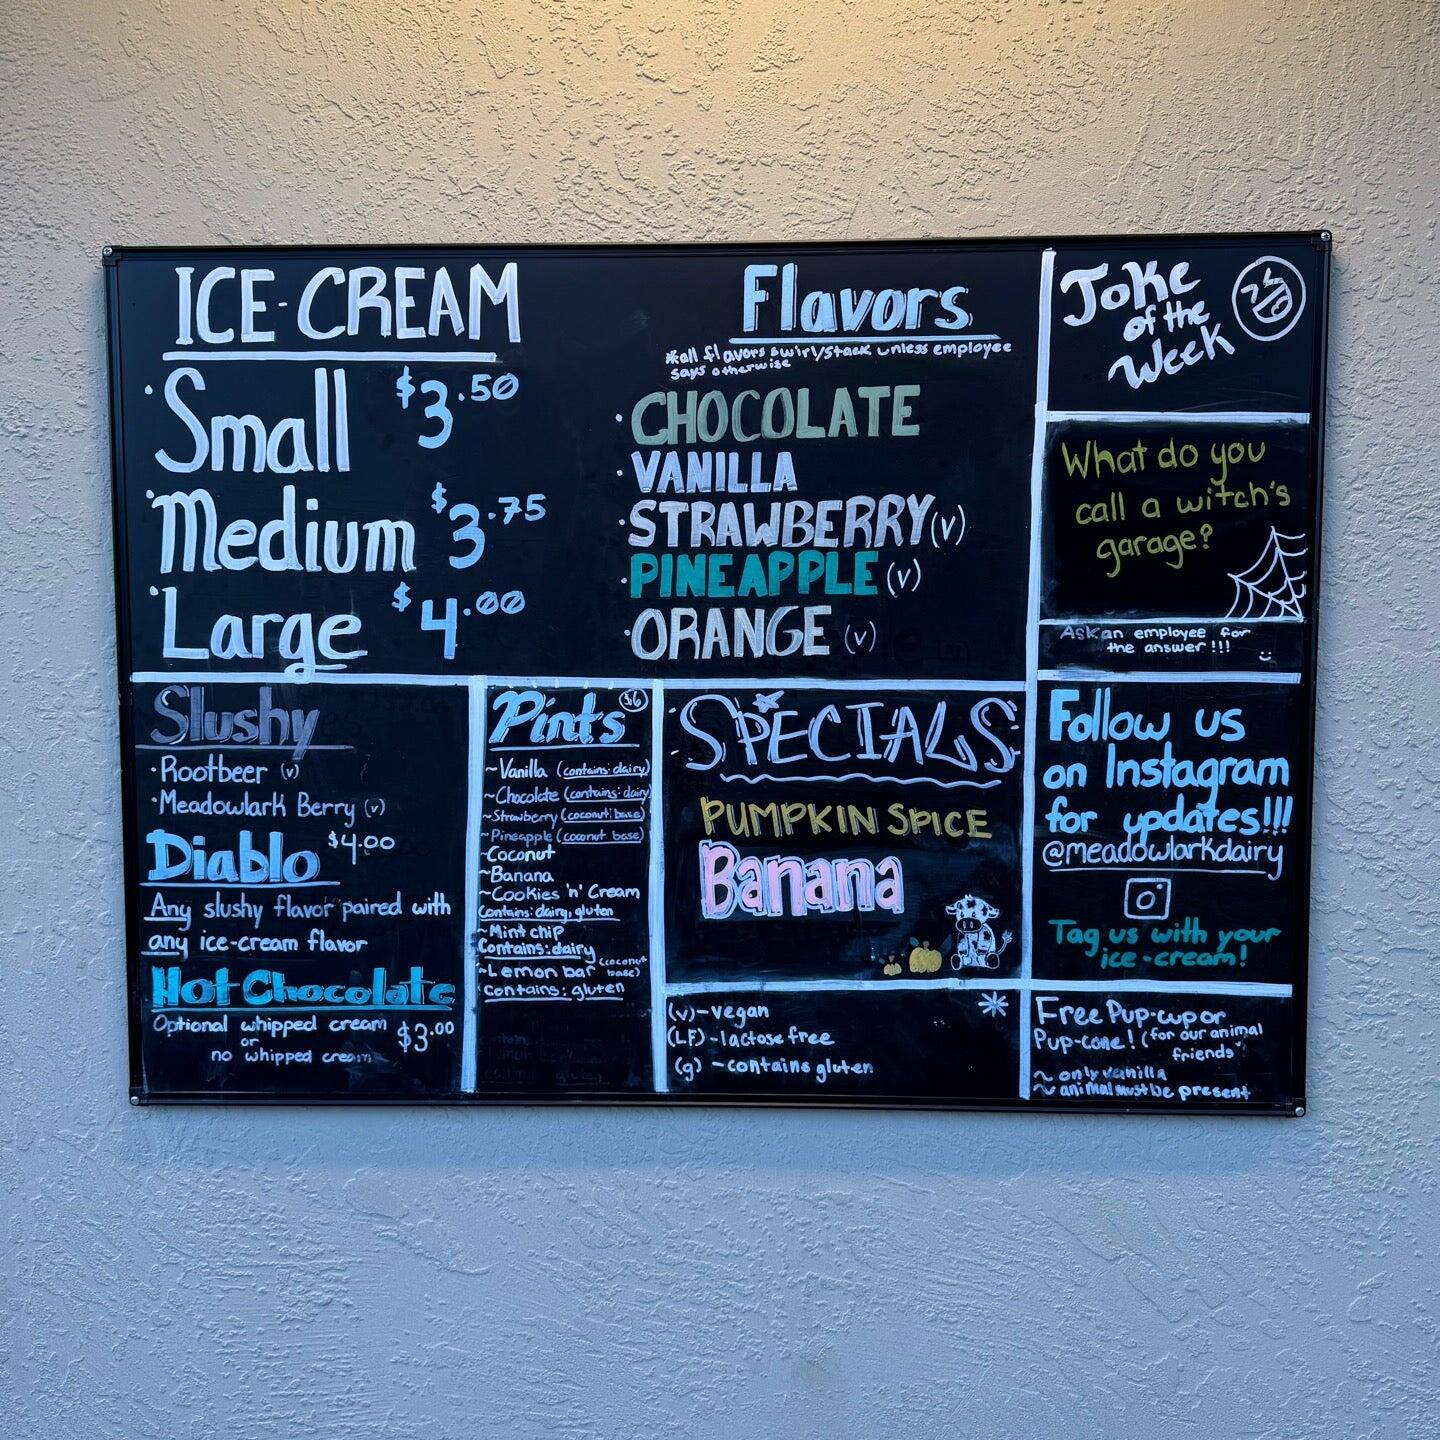 ICE-CREAM
· Small $3.50
· Medium $3.75
· Large $4.00
Flavors
*all flavors swirl/stack unless employee
says otherwise
· CHOCOLATE
· VANILLA
· STRAWBERRY (v)
· PINEAPPLE (v)
· ORANGE (v)
Joke
of the
Week
What do you
call a witch's
garage?
Ask an employee for
the answer!!!
Slushy
· Rootbeer (v)
· Meadowlark Berry (v)
Diablo $4.00
Any slushy flavor paired with
any ice-cream flavor
Hot Chocolate
Optional whipped cream $3.00
or
no whipped cream
Pints $6
~ Vanilla (contains: dairy)
~ Chocolate (contains: dairy)
~ Strawberry (coconut base)
~ Pineapple (coconut base)
~ Coconut
~ Banana
~ Cookies 'n' Cream
Contains: dairy, gluten
~ Mint chip
Contains: dairy
~ Lemon bar (coconut
base)
Contains: gluten
SPECIALS
PUMPKIN SPICE
Banana
(v) - vegan
(LF) - lactose free
(g) - contains gluten
*
Follow us
on Instagram
for updates!!!
@meadowlarkdairy
Tag us with your
ice-cream!
Free Pup-cup or
Pup-cone! (for our animal
friends)
~ only vanilla
~ animal must be present